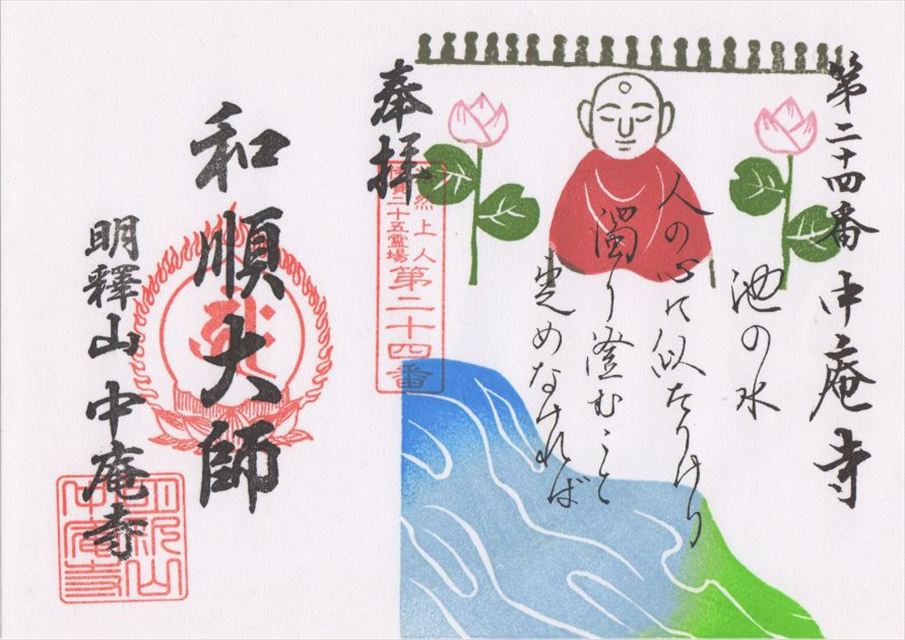 第二十四番 中庵寺
池の水
人の心に似たりけり
濁り澄むこと
定めなければ
奉拝
法然上人
佐賀二十五霊場
第二十四番
和順大師
明釋山 中庵寺
明釈山
中庵寺